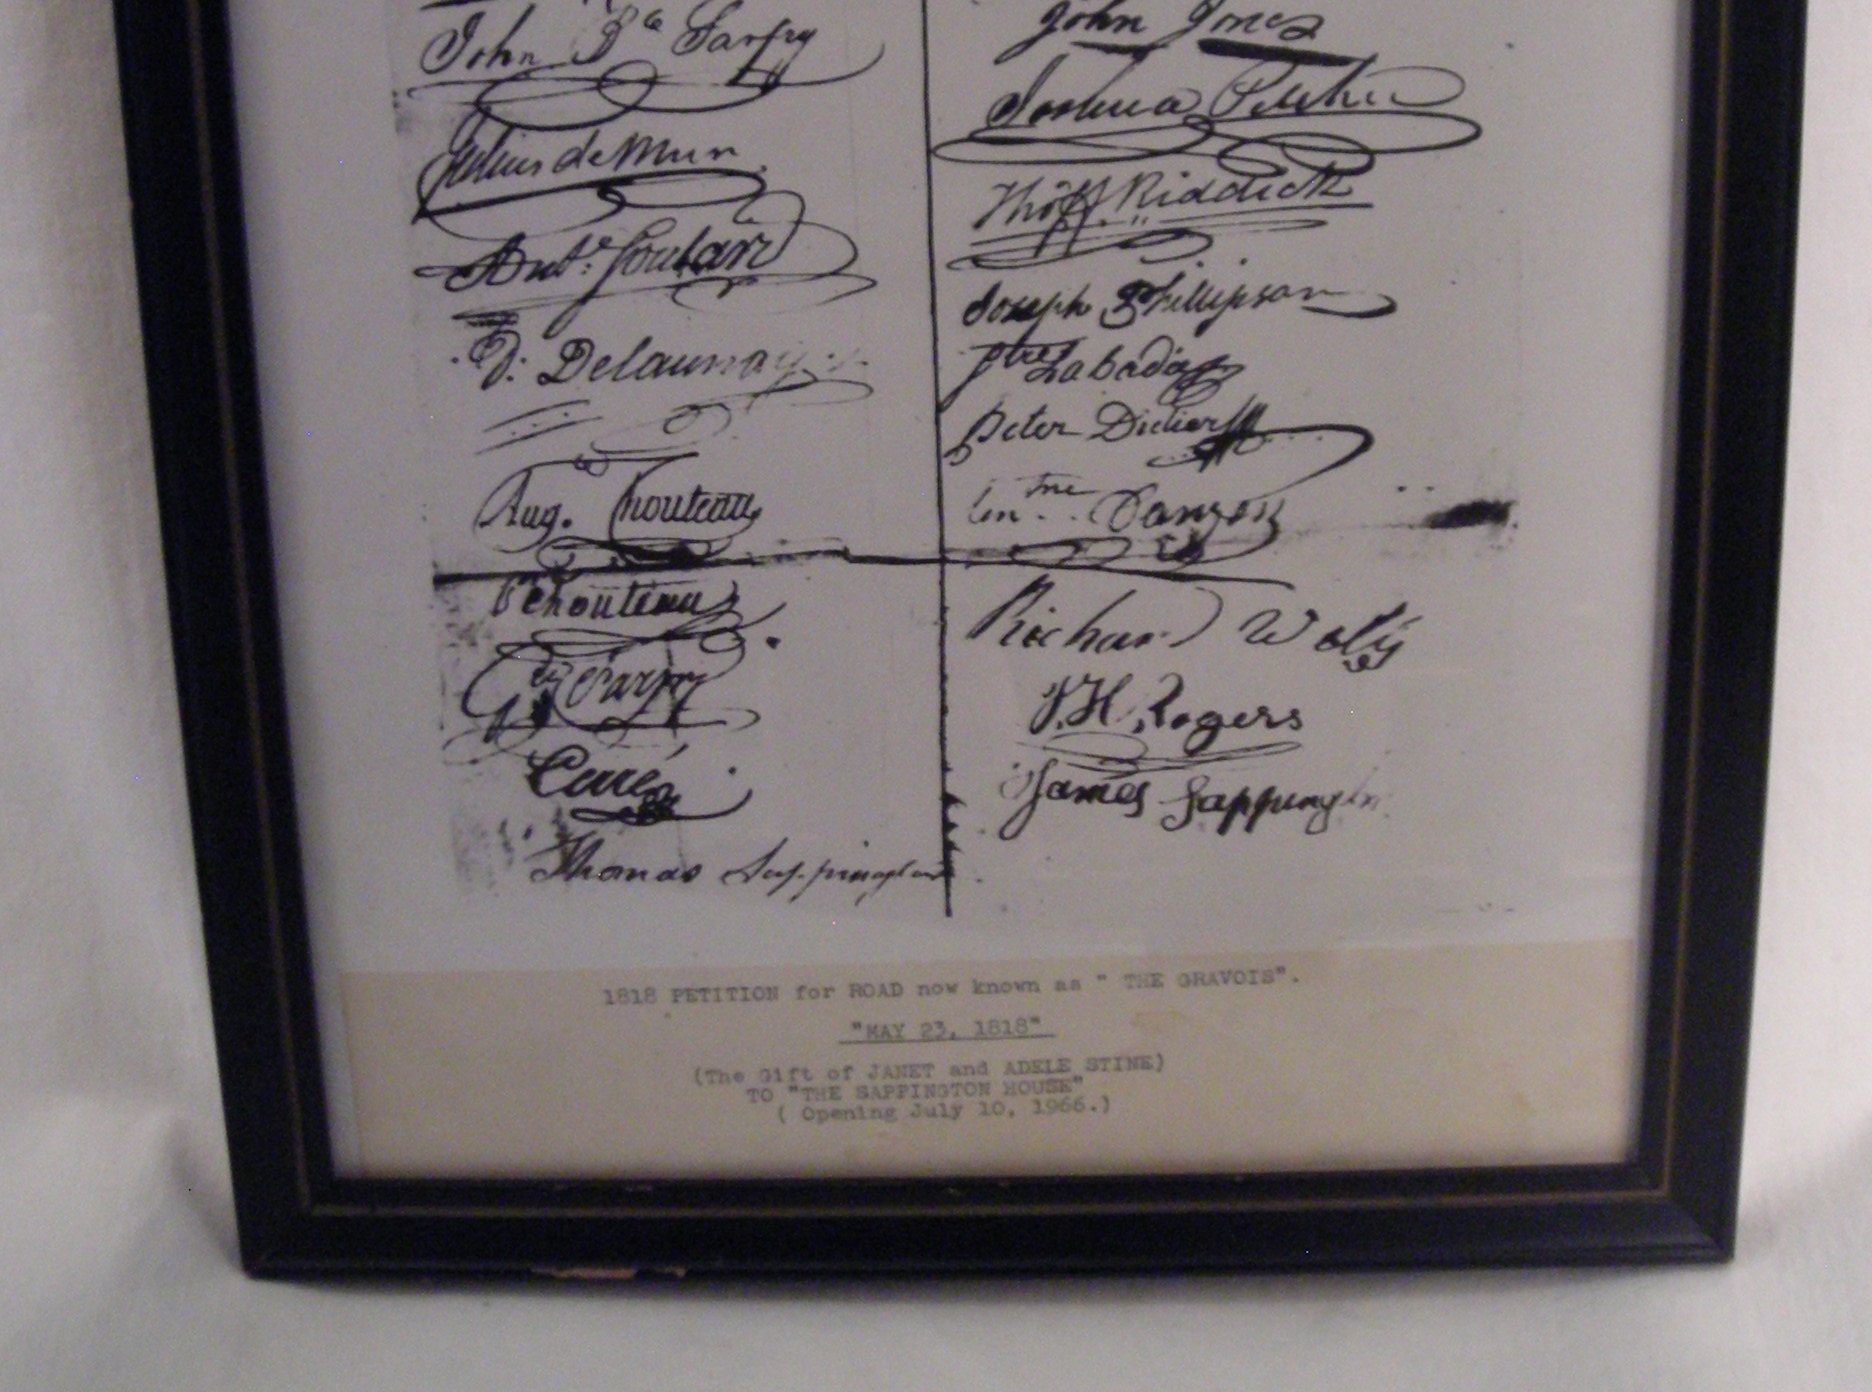 John Bte Sarpy
Julius deMun
Ante. Soulard
D. Delaunay
Aug. Chouteau
P Chouteau
Sarpy
Carré
Thomas Sappington
John Jones
Joshua Pilcher
Thos F. Riddick
Joseph Phillipson
Labadie
Peter Didier
Richard
T.H. Rogers
James Sappington
1818 PETITION for ROAD now known as " THE GRAVOIS".
"MAY 23, 1818"
(The Gift of JANET and ADELE STINE)
TO "THE SAPPINGTON HOUSE"
( Opening July 10, 1966.)